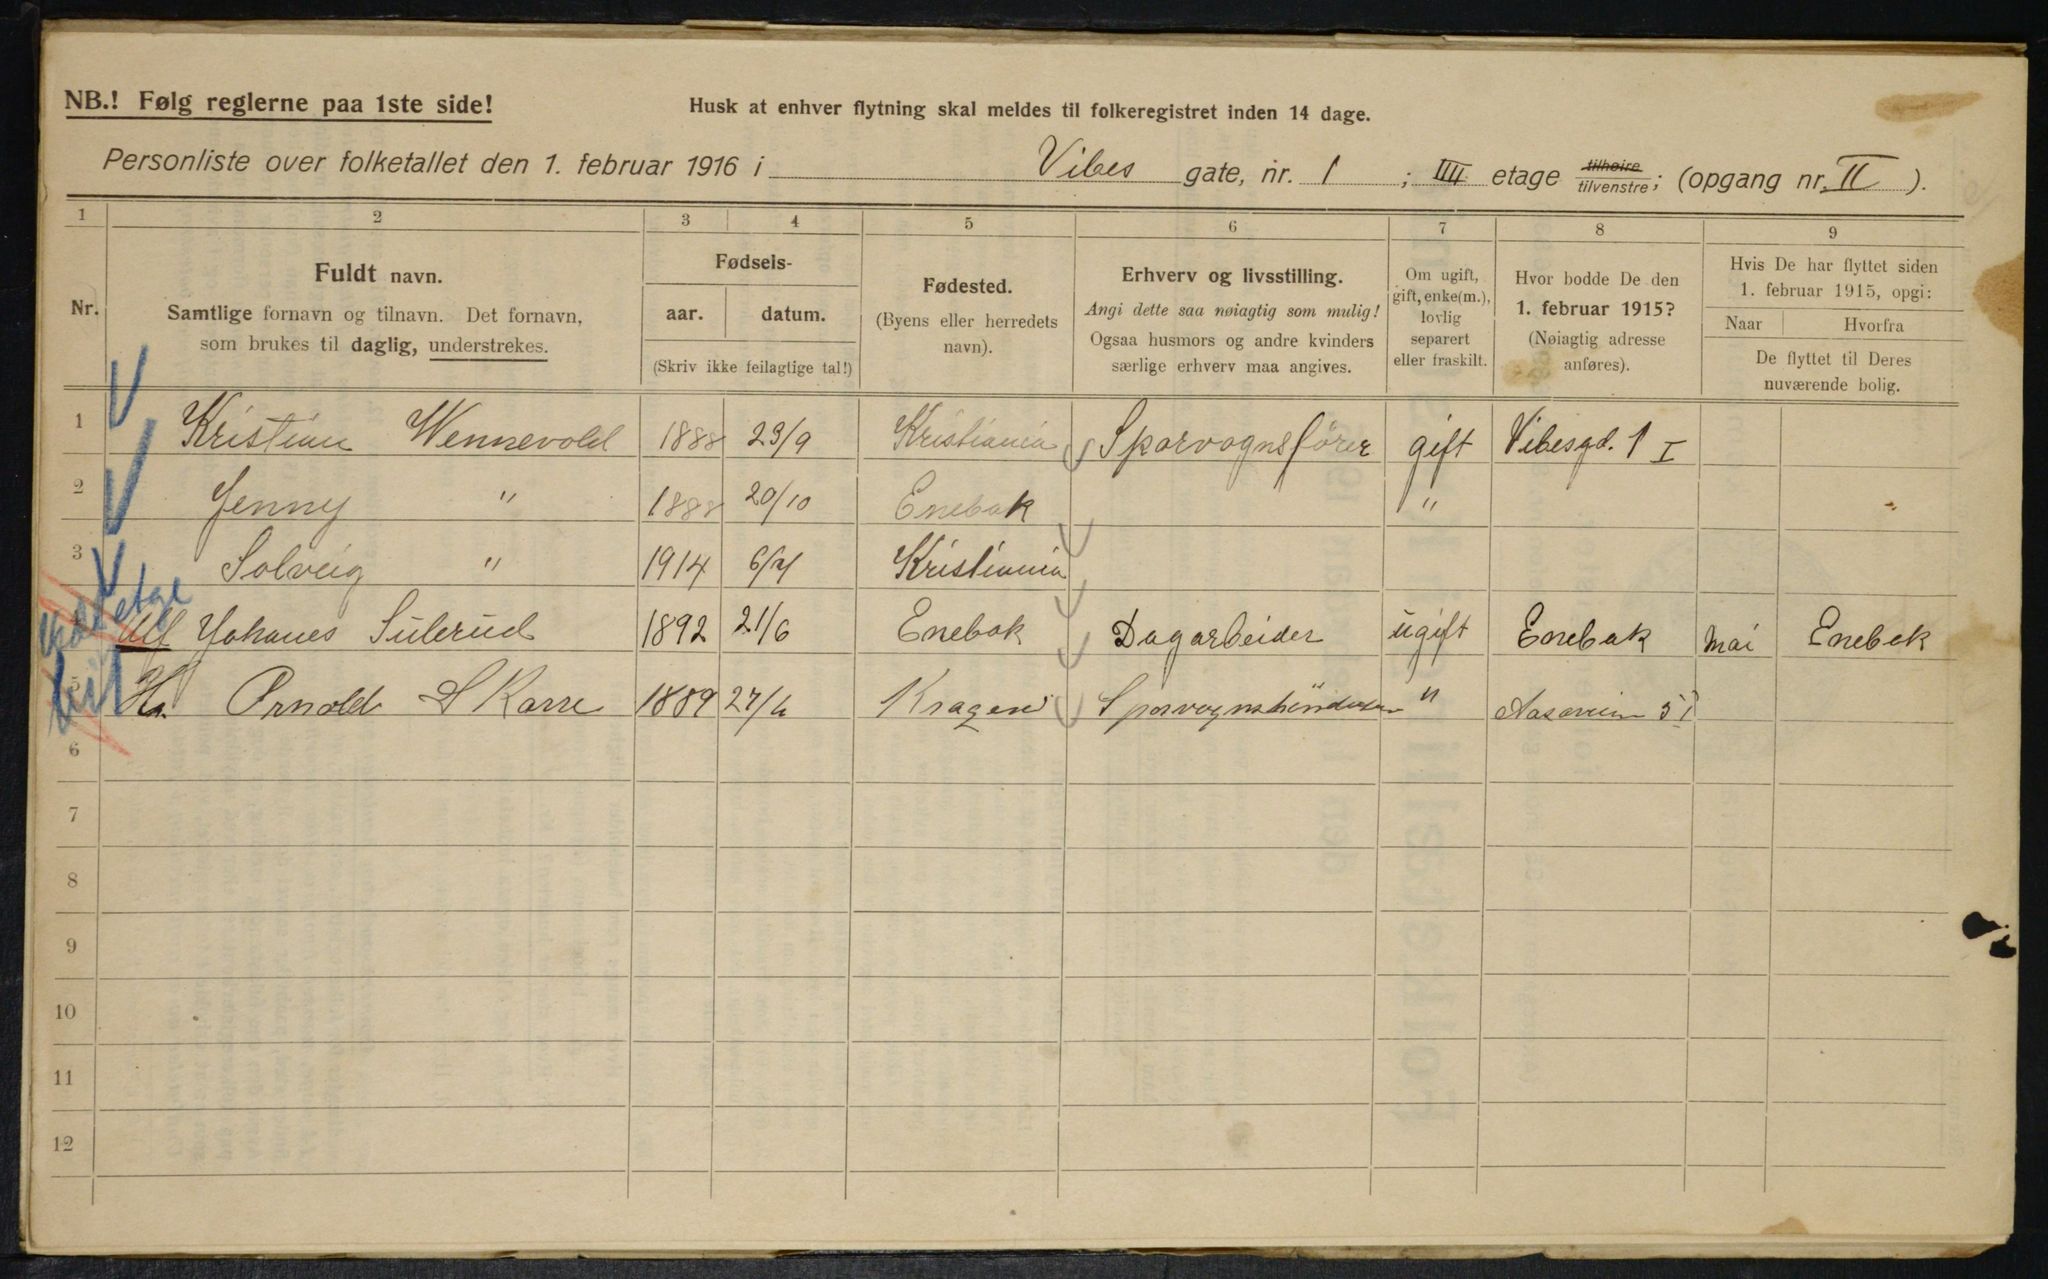 NB.! Følg reglerne paa 1ste side!
Husk at enhver flytning skal meldes til folkeregistret inden 14 dage.
Personliste over folketallet den 1. februar 1916 i Vibes gate, nr. 1 ; IIII etage tilhøire tilvenstre; (opgang nr. II ).
1 2 3 4 5 6 7 8 9
Nr.
Fuldt navn.
Samtlige fornavn og tilnavn. Det fornavn,
som brukes til daglig, understrekes.
Fødsels-
aar. datum.
(Skriv ikke feilagtige tal!)
Fødested.
(Byens eller herredets
navn).
Erhverv og livsstilling.
Angi dette saa nøiagtig som mulig!
Ogsaa husmors og andre kvinders
særlige erhverv maa angives.
Om ugift,
gift, enke(m.),
lovlig
separert
eller fraskilt.
Hvor bodde De den
1. februar 1915?
(Nøiagtig adresse
anføres).
Hvis De har flyttet siden
1. februar 1915, opgi:
Naar Hvorfra
De flyttet til Deres
nuværende bolig.
1 Kristian Wennevold 1888 23/9 Kristiania Sporvognsfører gift Vibesgd. 1 I
2 Jenny " 1888 20/10 Enebak "
3 Solveig " 1914 6/7 Kristiania
etage
Alf Johanes Sulerud 1892 21/6 Enebak Dagarbeider ugift Enebak Mai Enebak
5 Hr. Arnold Skarre 1889 27/6 Kragerø "
6
7
8
9
10
11
12